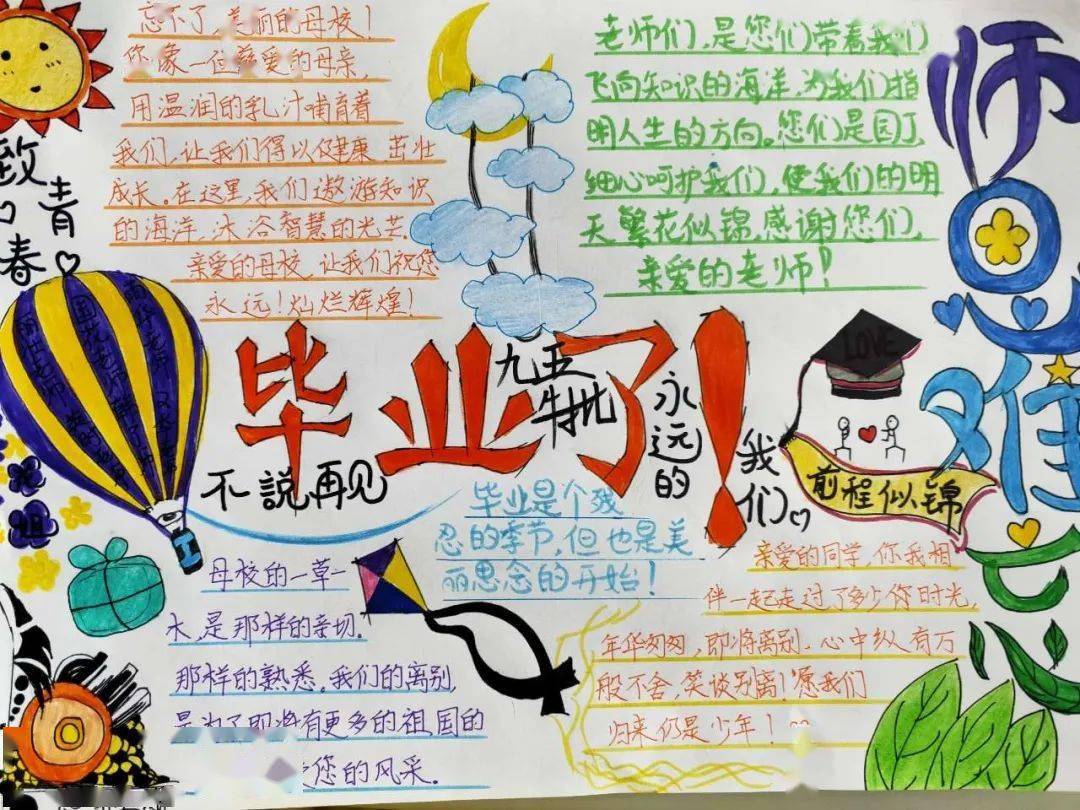 忘不了,美丽的母校!
你象一位慈爱的母亲,
用温润的乳汁哺育着
我们,让我们得以健康 茁壮
成长。在这里,我们遨游知识
的海洋,沐浴智慧的光芒。
亲爱的母校,让我们祝您
永远!灿烂辉煌!
老师们,是您们带着我们
飞向知识的海洋,为我们指
明人生的方向。您们是园丁,
细心呵护我们,使我们的明
天繁花似锦,感谢您们,
亲爱的老师!
师恩难忘
致青春
毕业了!
九五
牛批
不説再见
永远的
我们
LOVE
前程似锦
毕业是个残
忍的季节,但也是美
丽思念的开始!
母校的一草一
木,是那样的亲切.
那样的熟悉。我们的离别,
是为了即将有更多的祖国的
您的风采.
亲爱的同学,你我相
伴一起走过了多少的时光,
年华匆匆,即将离别.心中纵有万
般不舍,笑谈别离!愿我们
归来仍是少年!